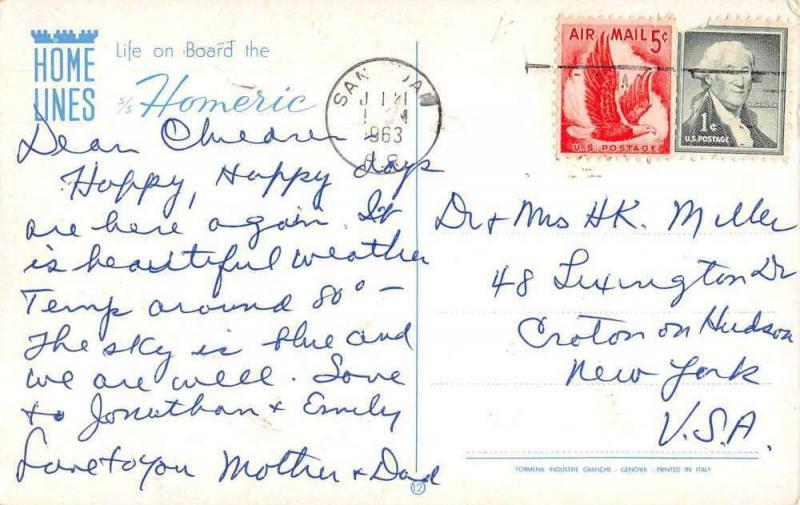 HOME LINES
Life on Board the
S/S Homeric
SAN JUAN
1963
AIR MAIL 5¢
U.S. POSTAGE
1¢
U.S. POSTAGE
Dear Children
Happy, Happy days
are here again. It
is beautiful weather
Temp around 80° –
The sky is blue and
we are well. Love
to Jonathan & Emily
Love to you Mother & Dad
Dr & Mrs HK. Miller
48 Lexington Dr
Croton on Hudson
New York
U.S.A.
TORMENA INDUSTRIE GRAFICHE - GENOVA - PRINTED IN ITALY
12